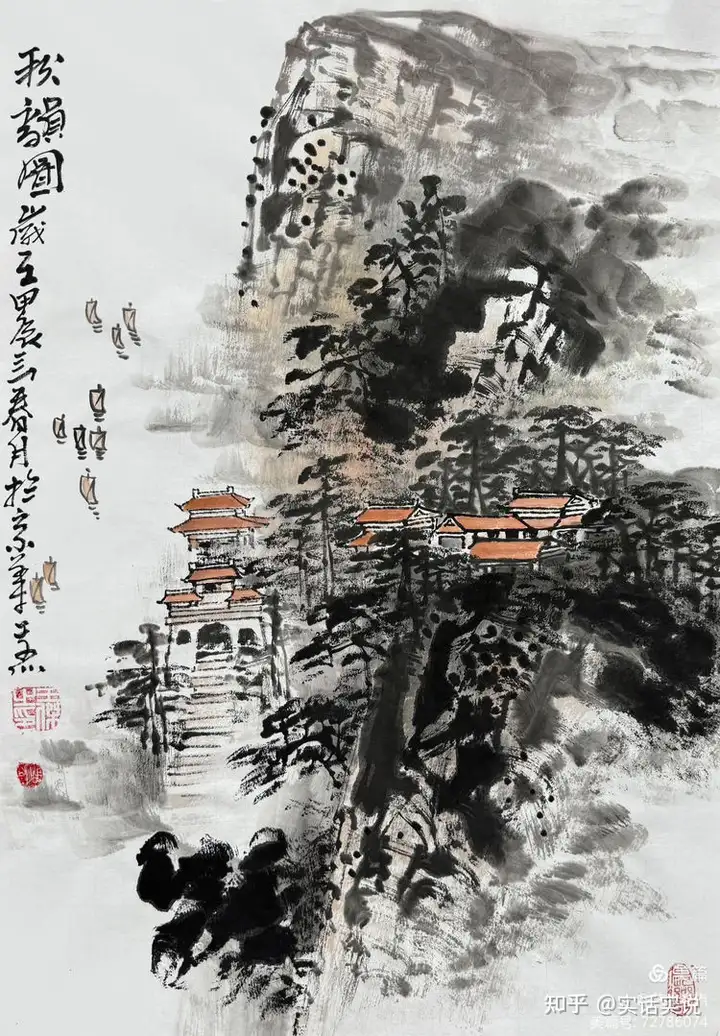 秋韻圖歲在甲辰三春月於京華
知乎 @实话实说
72786074